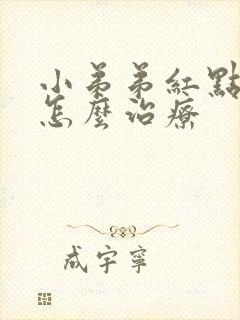 小弟弟紅點
怎麼治療
成宇寧